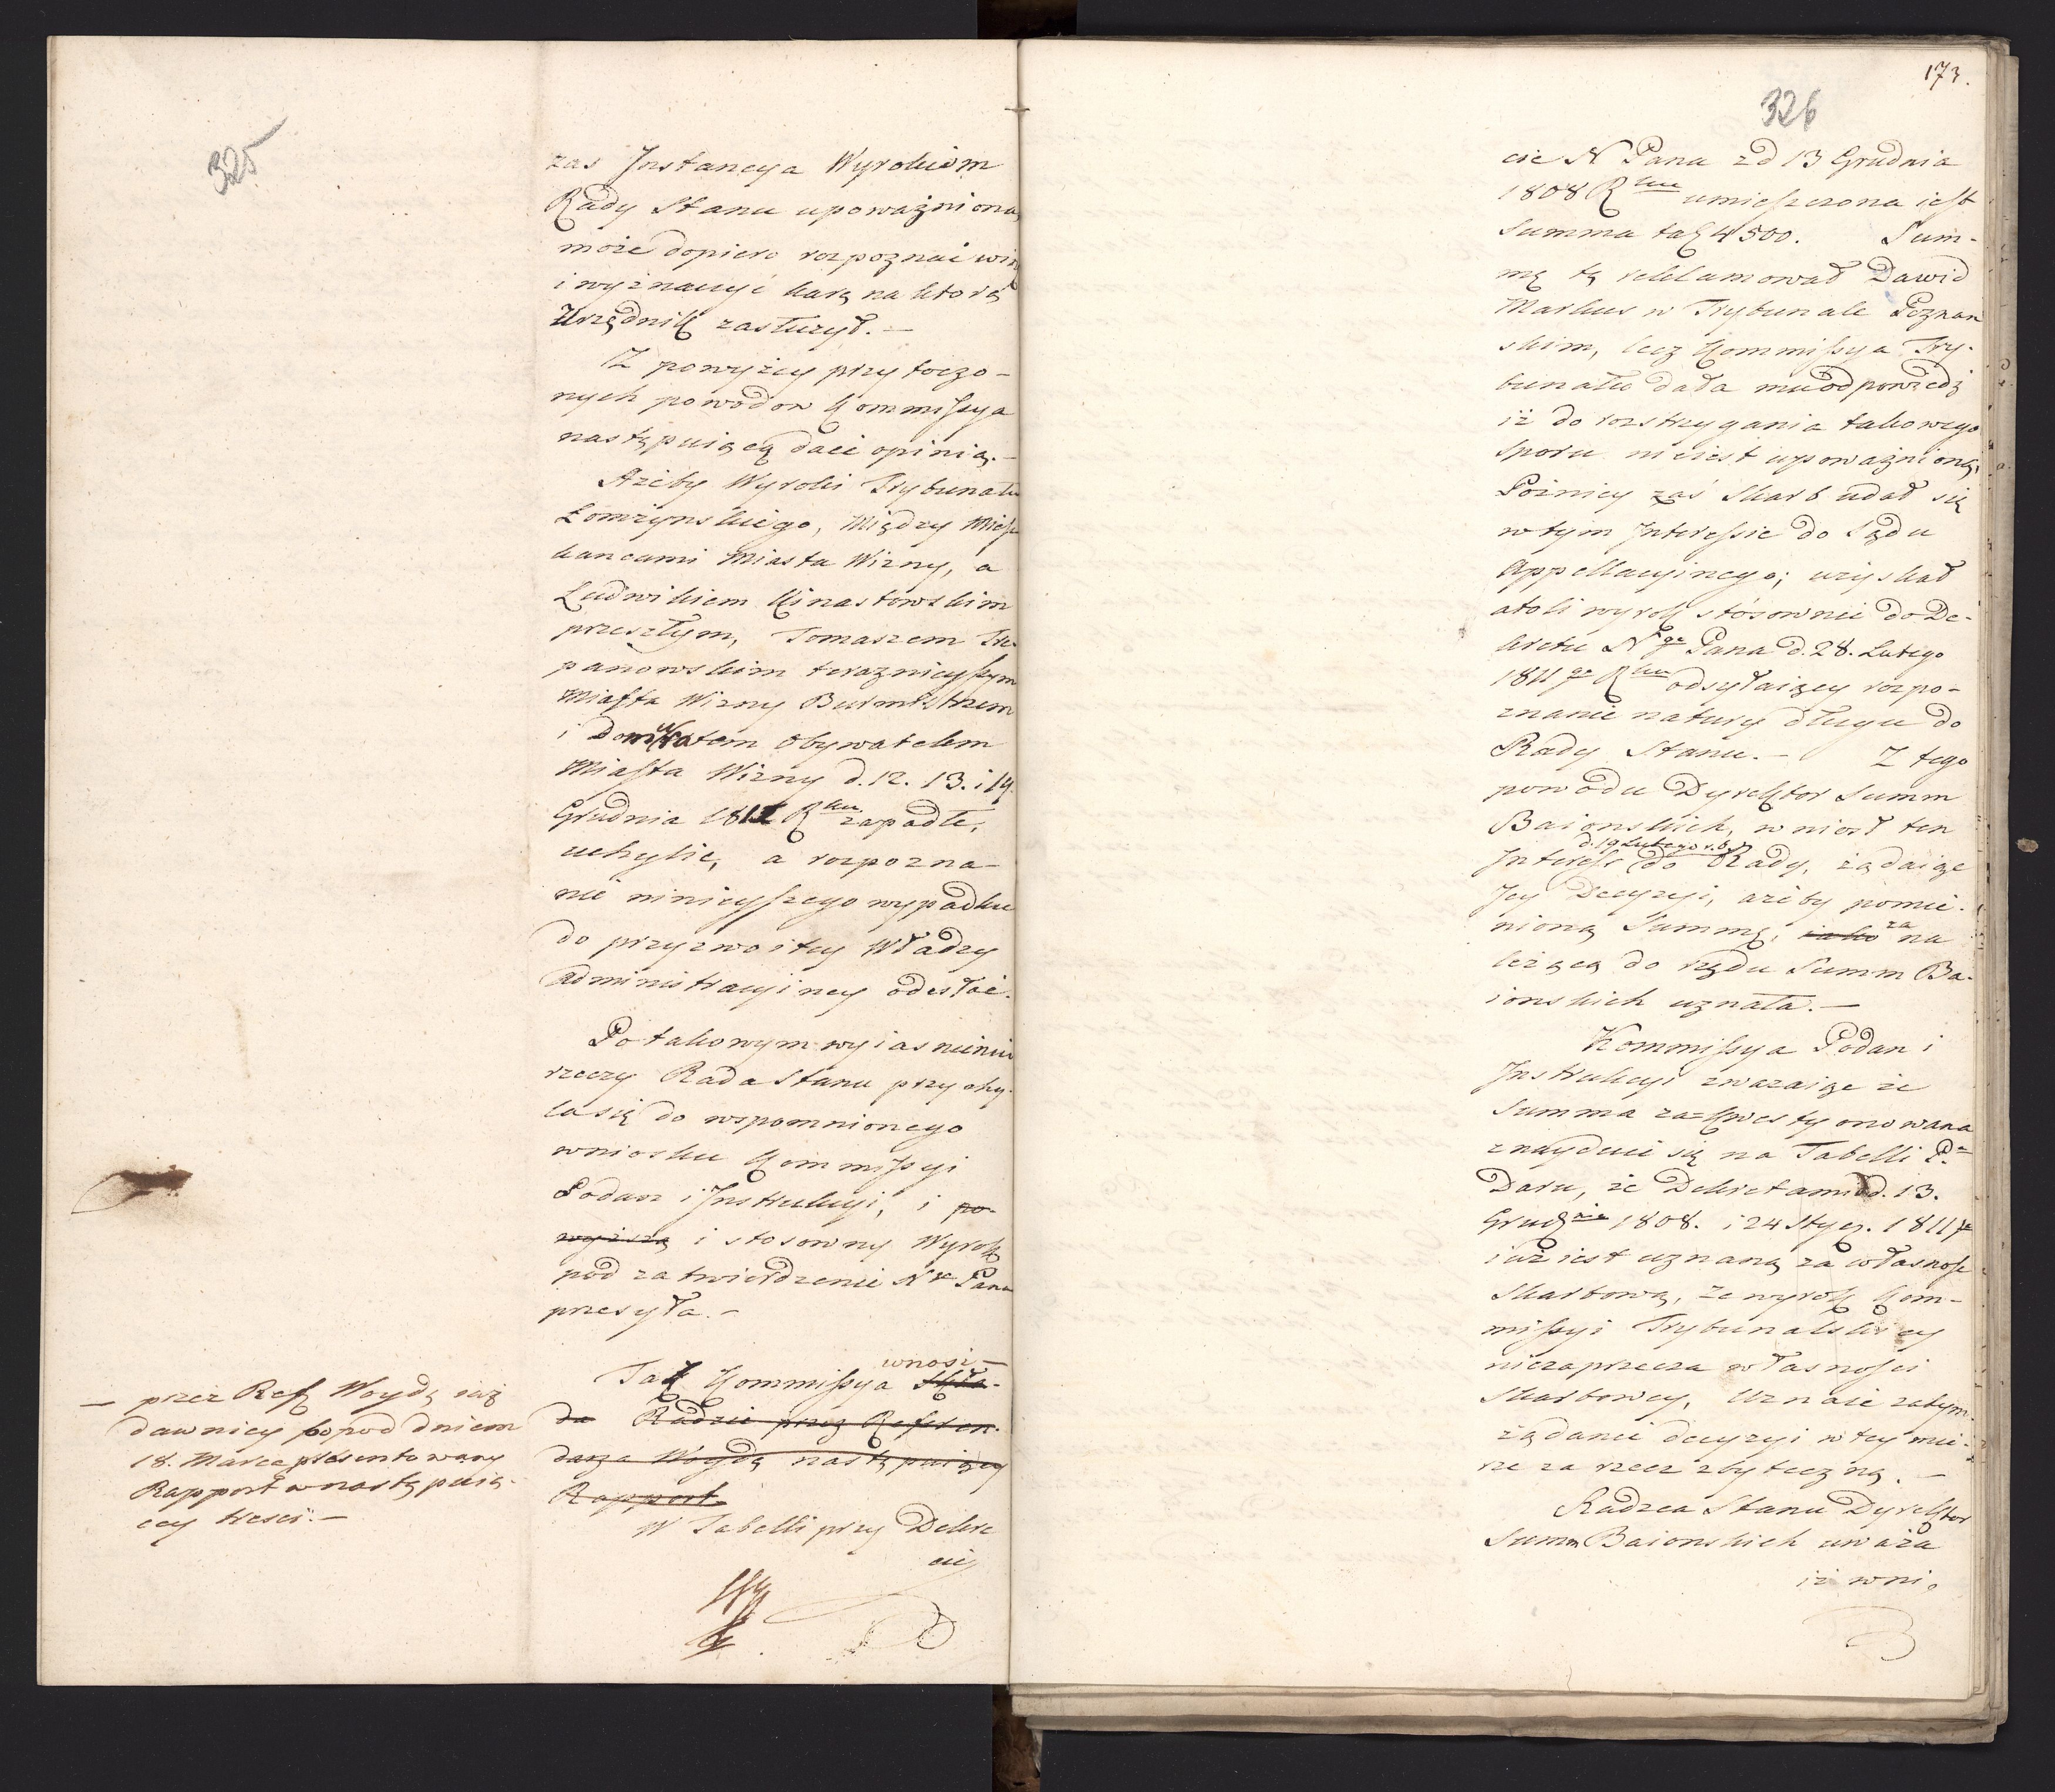 325
zas Jnstancya Wyrokiem
Rady Stanu upoważniona,
może dopiero rozpoznać winę
i wyznaczyć karę na ktorą
Urzędnik zasłużył. —
Z powyżey przytoczo-
nych powodow Kommissya
następuiącą daie opinią. —
Ażeby Wyroki Trybunału
Łomżynskiego, Między Miesz
kancami Miasta Wizny, a
Ludwikiem Kinastowskim
przeszłym, Tomaszem
panowskim teraznieyszym
Miasta Wizny Burmistrzem
i Donatem Obywatelem
Miasta Wizny d. 12. 13. i 14.
Grudnia 1811 Rku zapadłe,
uchylić, a rozpozna-
nie ninieyszego wypadku
do przyzwoitey Władzy
Administracyiney odesłać.
Po takowym wyiasnieniu
rzeczy Rada Stanu przychy-
la się do wspomnionego
wniosku Kommissyi
Podań i Jnstrukcyi, i po-
wyższą i stosowny Wyrok
pod zatwierdzenie N° Pana
przesyła. —
wnosi —
Taż Kommissya Skła-
da Radzie przez Referen-
darza Woydę następuiący
Rapport.
— przez Ref Woydę iuż
dawniey bo pod dniem
18. Marca prezentowany
Rapport w nastę puią-
cey tresci. —
W Tabelli przy Dekre
cie
173.
326
cie N Pana z d 13 Grudnia
1808 Rku umieszczona iest
Summa tal 4500. Sum-
mę tę reklamował Dawid
Markus w Trybunale Poznan
skim, lecz Kommissya Try-
bunału dała mu odpowiedź
iż do rozstrzygania takowego
sporu nie iest upoważnioną,
Pożniey zaś Skarb udał się
w tym Jnteressie do Sądu
Appellacyinego; uzyskał
atoli wyrok stósownie do De-
kretu Nge Pana d. 28. Lutego
1811ge Rku odsyłaiący rozpo-
znanie natury długu do
Rady Stanu. — Z tego
powodu Dyrektor Summ
Baionskich, wniosł ten
d. 19 Lutego r. b.
Jnteress do Rady, żądaiąc
Jey Decyzyi, ażeby pomie-
nioną Summę, iako za na
leżącą do rzędu Summ Ba-
ionskich uznała. —
Kommissya Podan i
Jnstrukcyi zwazaiąc że
Summa zakwestyonowana
znayduie się na Tabelli P.
Daru, że Dekretami d. 13.
Grudnia 1808. i 24 Stycz. 1811
iuż iest uznaną za własnosc
Skarbową, że wyrok Kom-
missyi Trybunalskiey
niezaprzecza własnosci
Skarbowey, Uznaie zatym
żądanie decyzyi w tey mie-
rze za rzecz zbyteczną. —
Radzca Stanu Dyrektor
Summ Baionskich uważa
iż wnio